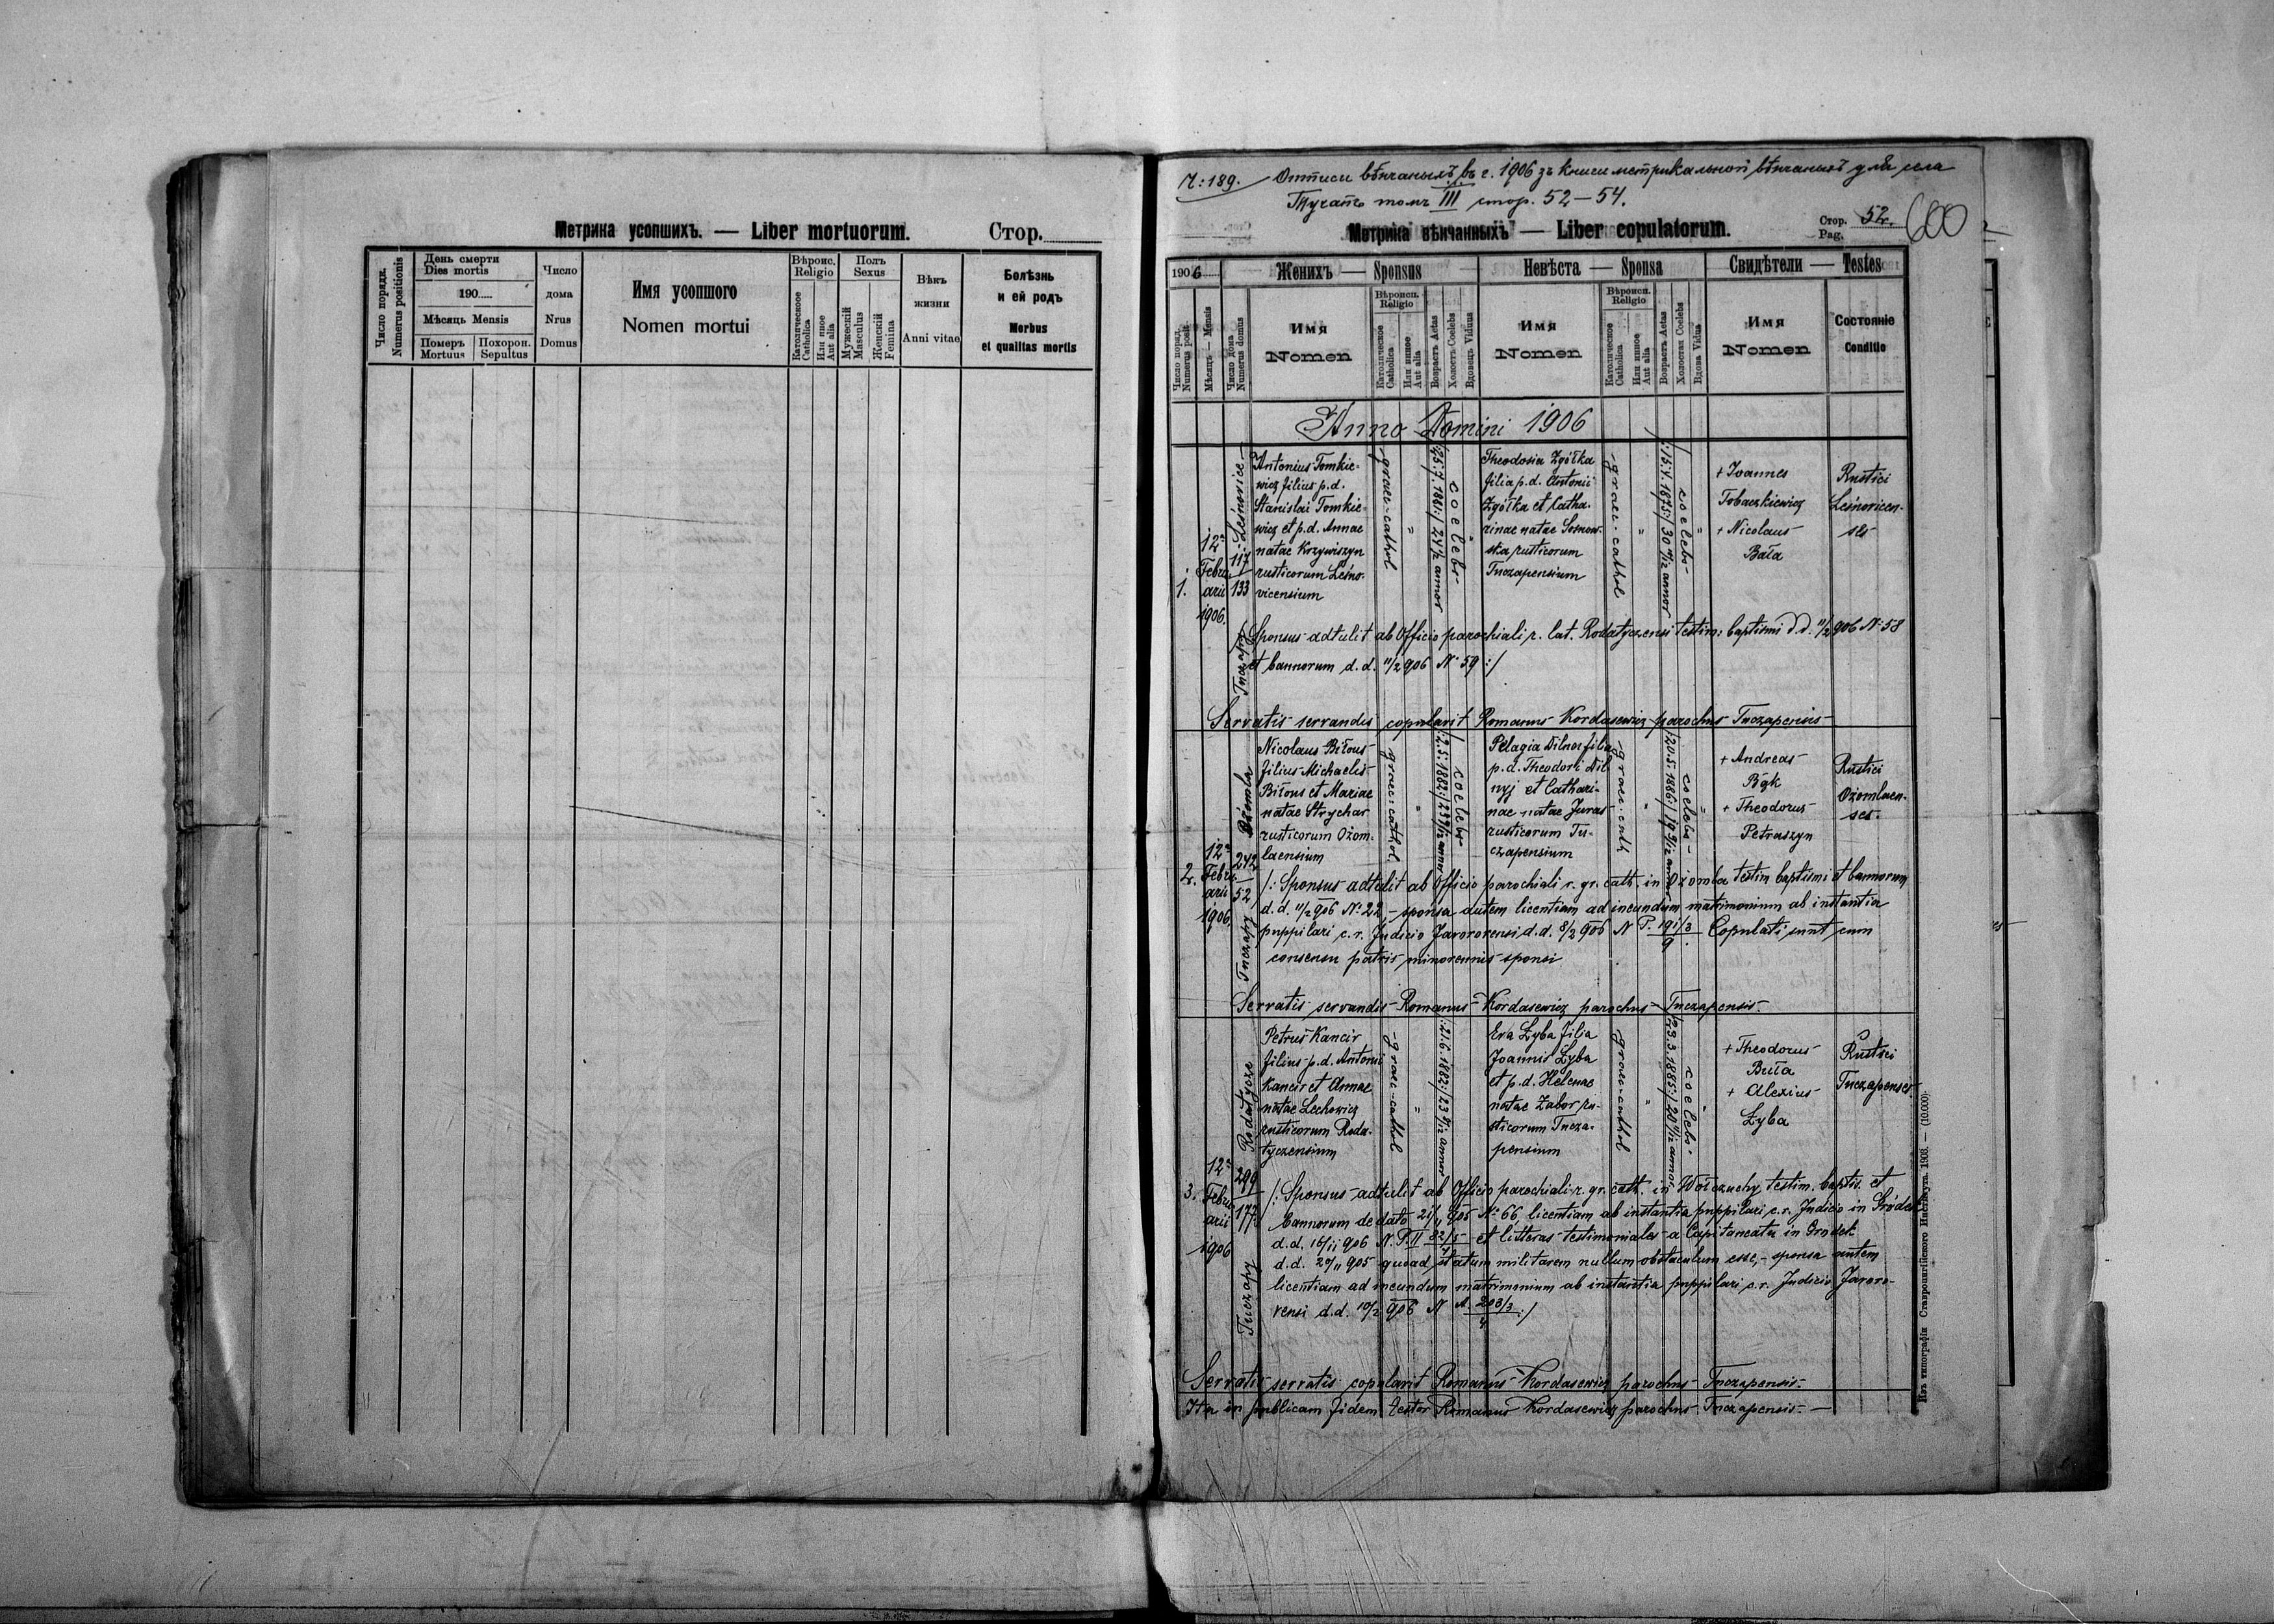 Метрика усопшихъ. — Liber mortuorum.
Стор.
Число поряд.
Numerus positionis
День смерти
Dies mortis
190
Мѣсяць Mensis
Померъ
Mortuus
Похорон.
Sepultus
Число
дома
Nrus
Domus
Имя усопшого
Nomen mortui
Вѣроис.
Religio
Католическое
Catholica
Или иное
Aut alia
Полъ
Sexus
Мужескій
Masculus
Женскій
Femina
Вѣкъ
жизни
Anni vitae
Болѣзнь
и ей родъ
Morbus
et qualitas mortis
Ч: 189. Отписи вѣнчаныхъ въ г. 1906 зъ книги метрикальной вѣнчаныхъ для села
Тучапъ томъ III стор. 52–54.
Метрика вѣнчанныхъ — Liber copulatorum.
Стор.
Pag.
52.
600
1906
Женихъ — Sponsus
Невѣста — Sponsa
Свидѣтели — Testes
Число поряд.
Numerus posit.
Мѣсяць — Mensis
Число дома
Numerus domus
Имя
Nomen
Вѣроисп.
Religio
Католическое
Catholica
Или иное
Aut alia
Возрастъ Aetas
Холостъ Coelebs
Вдовець Viduus
Имя
Nomen
Вѣроисп.
Religio
Католическое
Catholica
Или иное
Aut alia
Возрастъ Aetas
Холостая Coelebs
Вдова Vidua
Имя
Nomen
Состояніе
Conditio
Anno Domini 1906
1.
12a
Febru-
arii
1906.
Leśnovice
117
133
Tuczapy
Antonius Tomkie-
wicz filius p.d.
Stanislai Tomkie-
wicz et p.d. Annae
natae Krzywiszyn
rusticorum Leśno-
vicensium
graec-cathol
"
coelebs
Theodosia Zgółka
filia p.d. Antonii
Zgółka et Catha-
rinae natae Sosnow-
ska rusticorum
Tuczapensium
graec-cathol
"
coelebs
"
+ Ioannes
Tobaczkiewicz
+ Nicolaus
Bała
Rustici
Leśnovicen-
ses
/: Sponsus adtulit ab Officio parochiali r. lat. Rodatyczensi testim: baptismi d.d. 11/2 906 N: 58
et bannorum d.d. 11/2 906 N: 59 :/
Servatis servandis copulavit Romanus Kordasewicz parochus Tuczapensis
2.
12a
Febru-
arii
1906.
Ożomla
242
52
Tuczapy
Nicolaus Biłous
filius Michaelis
Biłous et Mariae
natae Strychar
rusticorum Ożom-
laensium
graec-cathol
"
coelebs
Pelagia Dilnoj filia
p.d. Theodori Dil
nyj et Cathari-
nae natae Juras
rusticorum Tu-
czapensium
graec-cath
"
coelebs
"
+ Andreas
Bąk
+ Theodorus
Petraszyn
Rustici
Ożomlaen-
ses.
/: Sponsus adtulit ab Officio parochiali r. gr. cath. in Ożomla testim baptismi et bannorum
d.d. 11/2 906 N: 22 – sponsa autem licentiam ad ineundum matrimonium ab instantia
puppilari c.r. Judicio Javorovensi d.d. 8/2 906 N P. 191/3 / 9. Copulati sunt cum
consensu patris minorennis sponsi
Servatis servandis Romanus Kordasewicz parochus Tuczapensis.
3.
12a
Febru-
arii
1906
Rodatycze
299
177
Tuczapy
Petrus Kancir
filius p.d. Antonii
Kancir et Annae
natae Lechowicz
rusticorum Roda-
tyczensium
graec-cathol
"
coelebs
Eva Łyba filia
Joannis Łyba
et p.d. Helenae
natae Zabor ru-
sticorum Tucza-
pensium
graec-cathol
"
coelebs
"
+ Theodorus
Buła
+ Alexius
Łyba
Rustici
Tuczapenses.
/: Sponsus adtulit ab Officio parochiali r. gr. cath. in Wołczuchy testim. baptis. et
bannorum de dato 21/11 905 N: 66, licentiam ab instantia puppilari c.r. Judicio in Gródek
d.d. 16/11 906 N. P. II 82/5 / 4 et litteras testimoniales a Capitaneatu in Grodek
d.d. 20/11 905 quoad statum militarem nullum obstaculum esse, – sponsa autem
licentiam ad ineundum matrimonium ab instantia puppilari c.r. Judicio Javoro-
vensi d.d. 10/2 906 N A. 208/3 / 4 :/
Servatis servatis copulavit Romanus Kordasewicz parochus Tuczapensis.
Ita in publicam fidem testor Romanus Kordasewicz parochus Tuczapensis. —
Изъ типографіи Ставропигійского Института. 1908. — (10.000).